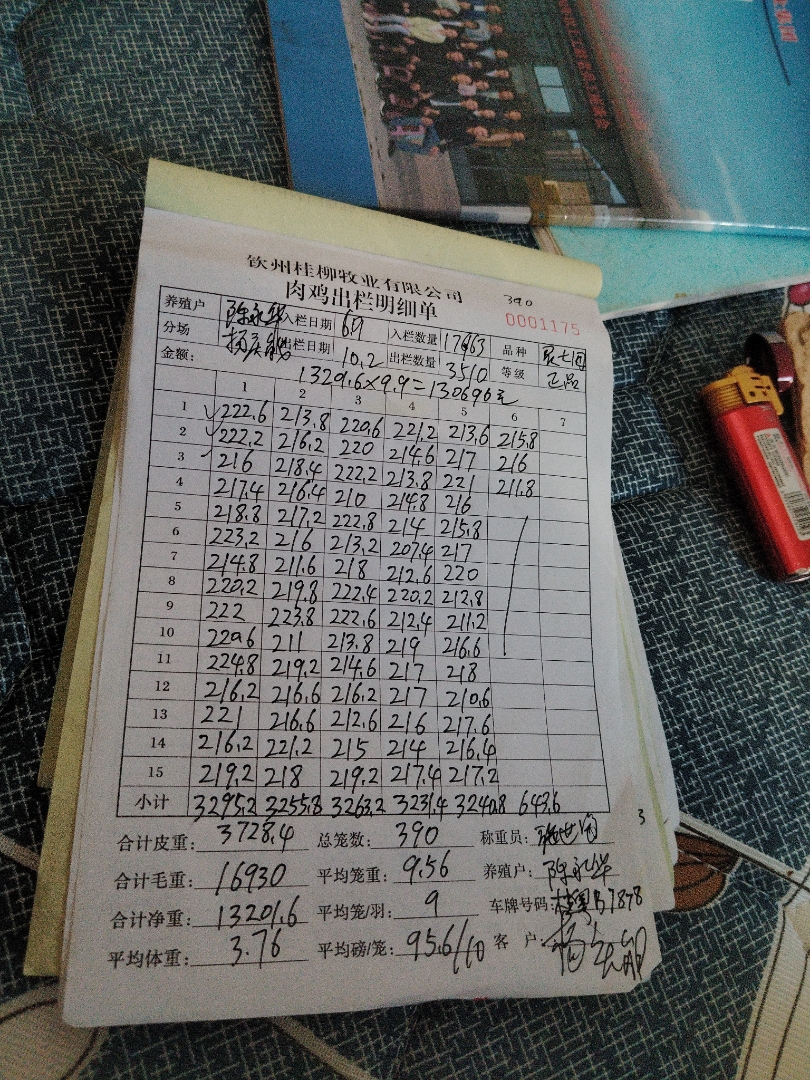 钦州桂柳牧业有限公司
肉鸡出栏明细单
390
0001175
养殖户 陈永华 入栏日期 6月 入栏数量 17463 品种
分场 出栏日期 10.2 出栏数量 3510 等级 正品
金额: 1320.6×9.9=130696元
1 2 3 4 5 6 7
1 222.6 213.8 220.6 221.2 213.6 215.8
2 222.2 216.2 220 214.6 217 216
3 216 218.4 222.2 213.8 221 211.8
4 217.4 216.4 210 214.8 216
5 218.8 217.2 222.8 214 215.8
6 223.2 216 213.2 207.4 217
7 214.8 211.6 218 212.6 220
8 220.2 219.8 222.4 220.2 212.8
9 222 223.8 222.6 212.4 211.2
10 220.6 211 213.8 219 216.6
11 224.8 219.2 214.6 217 218
12 216.2 216.6 216.2 217 210.6
13 221 216.6 212.6 216 217.6
14 216.2 221.2 215 214 216.4
15 219.2 218 219.2 217.4 217.2
小计 3295.2 3255.8 3263.2 3231.4 3240.8 643.6
合计皮重: 3728.4 总笼数: 390 称重员:
3
合计毛重: 16930 平均笼重: 9.56 养殖户: 陈永华
合计净重: 13201.6 平均笼/羽: 9 车牌号码:
平均体重: 3.76 平均磅/笼: 95.6/10 客户: